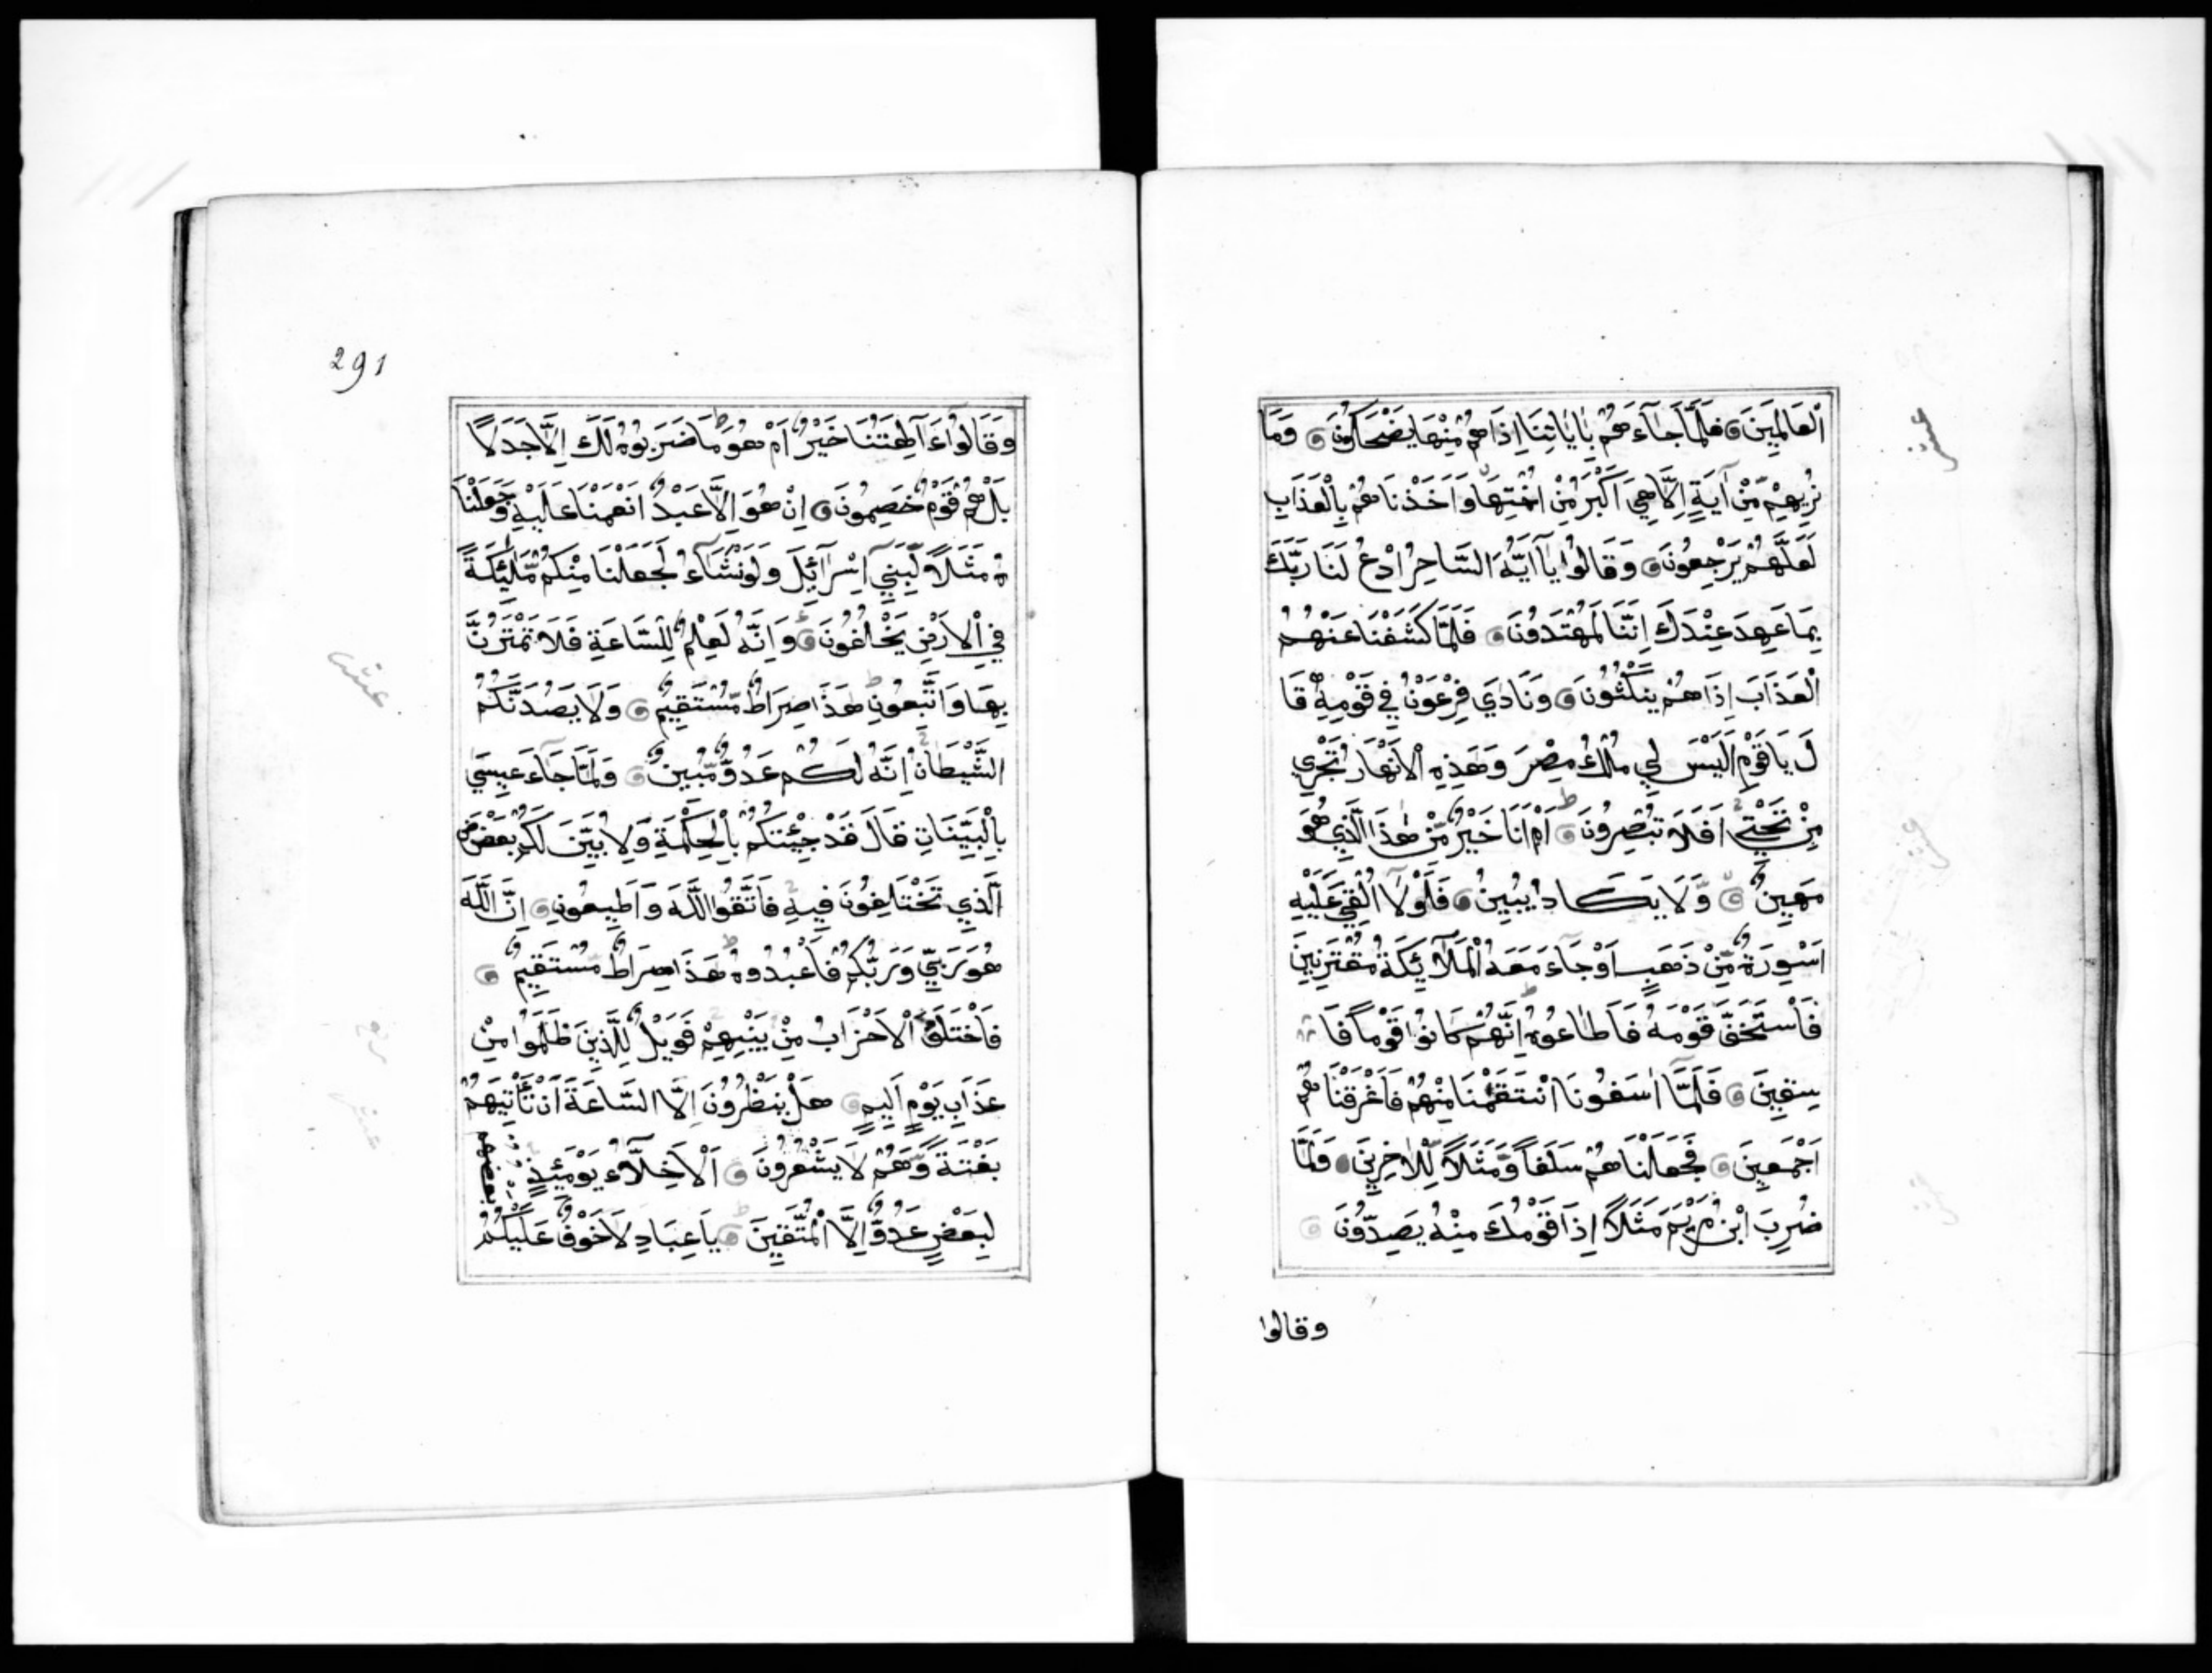 عشر
الْعَالَمِينَ فَلَمَّا جَآءَهُمْ بِاٰيَاتِنَا اِذَا هُمْ مِنْهَا يَضْحَكُونَ وَمَا
نُرِيهِمْ مِّنْ آيَةٍ اِلَّا هِيَ اَكْبَرُ مِنْ اُخْتِهَا وَاَخَذْنَاهُمْ بِالْعَذَابِ
لَعَلَّهُمْ يَرْجِعُونَ وَقَالُوا يَآ اَيُّهَ السَّاحِرُ ادْعُ لَنَا رَبَّكَ
بِمَا عَهِدَ عِنْدَكَ اِنَّنَا لَمُهْتَدُونَ فَلَمَّا كَشَفْنَا عَنْهُمُ
الْعَذَابَ اِذَا هُمْ يَنْكُثُونَ وَنَادَي فِرْعَوْنُ فِي قَوْمِهِ قَا
لَ يَا قَوْمِ اَلَيْسَ لِي مُلْكُ مِصْرَ وَهَذِهِ الْاَنْهَارُ تَجْرِي
مِنْ تَحْتِي اَفَلَا تُبْصِرُونَ اَمْ اَنَا خَيْرٌ مِّنْ هٰذَا الَّذِي هُوَ
مَهِينٌ وَّلَا يَكَادُ يُبِينُ فَلَوْلَآ اُلْقِيَ عَلَيْهِ
اَسْوِرَةٌ مِّنْ ذَهَبٍ اَوْ جَآءَ مَعَهُ الْمَلَآئِكَةُ مُقْتَرِنِينَ
فَاسْتَخَفَّ قَوْمَهُ فَاَطَاعُوهُ اِنَّهُمْ كَانُوا قَوْمًا فَا
سِقِينَ فَلَمَّآ اٰسَفُونَا انْتَقَمْنَا مِنْهُمْ فَاَغْرَقْنَاهُمْ
اَجْمَعِينَ فَجَعَلْنَاهُمْ سَلَفًا وَّمَثَلًا لِّلْاٰخِرِينَ وَلَمَّا
ضُرِبَ ابْنُ مَرْيَمَ مَثَلًا اِذَا قَوْمُكَ مِنْهُ يَصِدُّونَ
وقالوا
291
وَقَالُوٓا ءَاٰلِهَتُنَا خَيْرٌ اَمْ هُوَ مَا ضَرَبُوهُ لَكَ اِلَّا جَدَلًا
بَلْ هُمْ قَوْمٌ خَصِمُونَ اِنْ هُوَ اِلَّا عَبْدٌ اَنْعَمْنَا عَلَيْهِ وَجَعَلْنَا
هُ مَثَلًا لِّبَنِيٓ اِسْرَآئِلَ وَلَوْ نَشَآءُ لَجَعَلْنَا مِنْكُمْ مَّلٰئِكَةً
فِي الْاَرْضِ يَخْلُفُونَ وَاِنَّهُ لَعِلْمٌ لِلسَّاعَةِ فَلَا تَمْتَرُنَّ
بِهَا وَاتَّبِعُونِ هَذَا صِرَاطٌ مُّسْتَقِيمٌ وَلَا يَصُدَّنَّكُمُ
الشَّيْطَانُ اِنَّهُ لَكُمْ عَدُوٌّ مُّبِينٌ وَلَمَّا جَآءَ عِيسَي
بِالْبَيِّنَاتِ قَالَ قَدْ جِئْتُكُمْ بِالْحِكْمَةِ وَلِاُبَيِّنَ لَكُمْ بَعْضَ
الَّذِي تَخْتَلِفُونَ فِيهِ فَاتَّقُوا اللَّهَ وَاَطِيعُونِ اِنَّ اللَّهَ
هُوَ رَبِّي وَرَبُّكُمْ فَاعْبُدُوهُ هَذَا صِرَاطٌ مُّسْتَقِيمٌ
فَاخْتَلَفَ الْاَحْزَابُ مِنْ بَيْنِهِمْ فَوَيْلٌ لِلَّذِينَ ظَلَمُوا مِنْ
عَذَابِ يَوْمٍ اَلِيمٍ هَلْ يَنْظُرُونَ اِلَّا السَّاعَةَ اَنْ تَاْتِيَهُمْ
بَغْتَةً وَّهُمْ لَا يَشْعُرُونَ اَلْاَخِلَّآءُ يَوْمَئِذٍ بعضهم
لِبَعْضٍ عَدُوٌّ اِلَّا الْمُتَّقِينَ يَا عِبَادِ لَا خَوْفٌ عَلَيْكُمُ
عشر